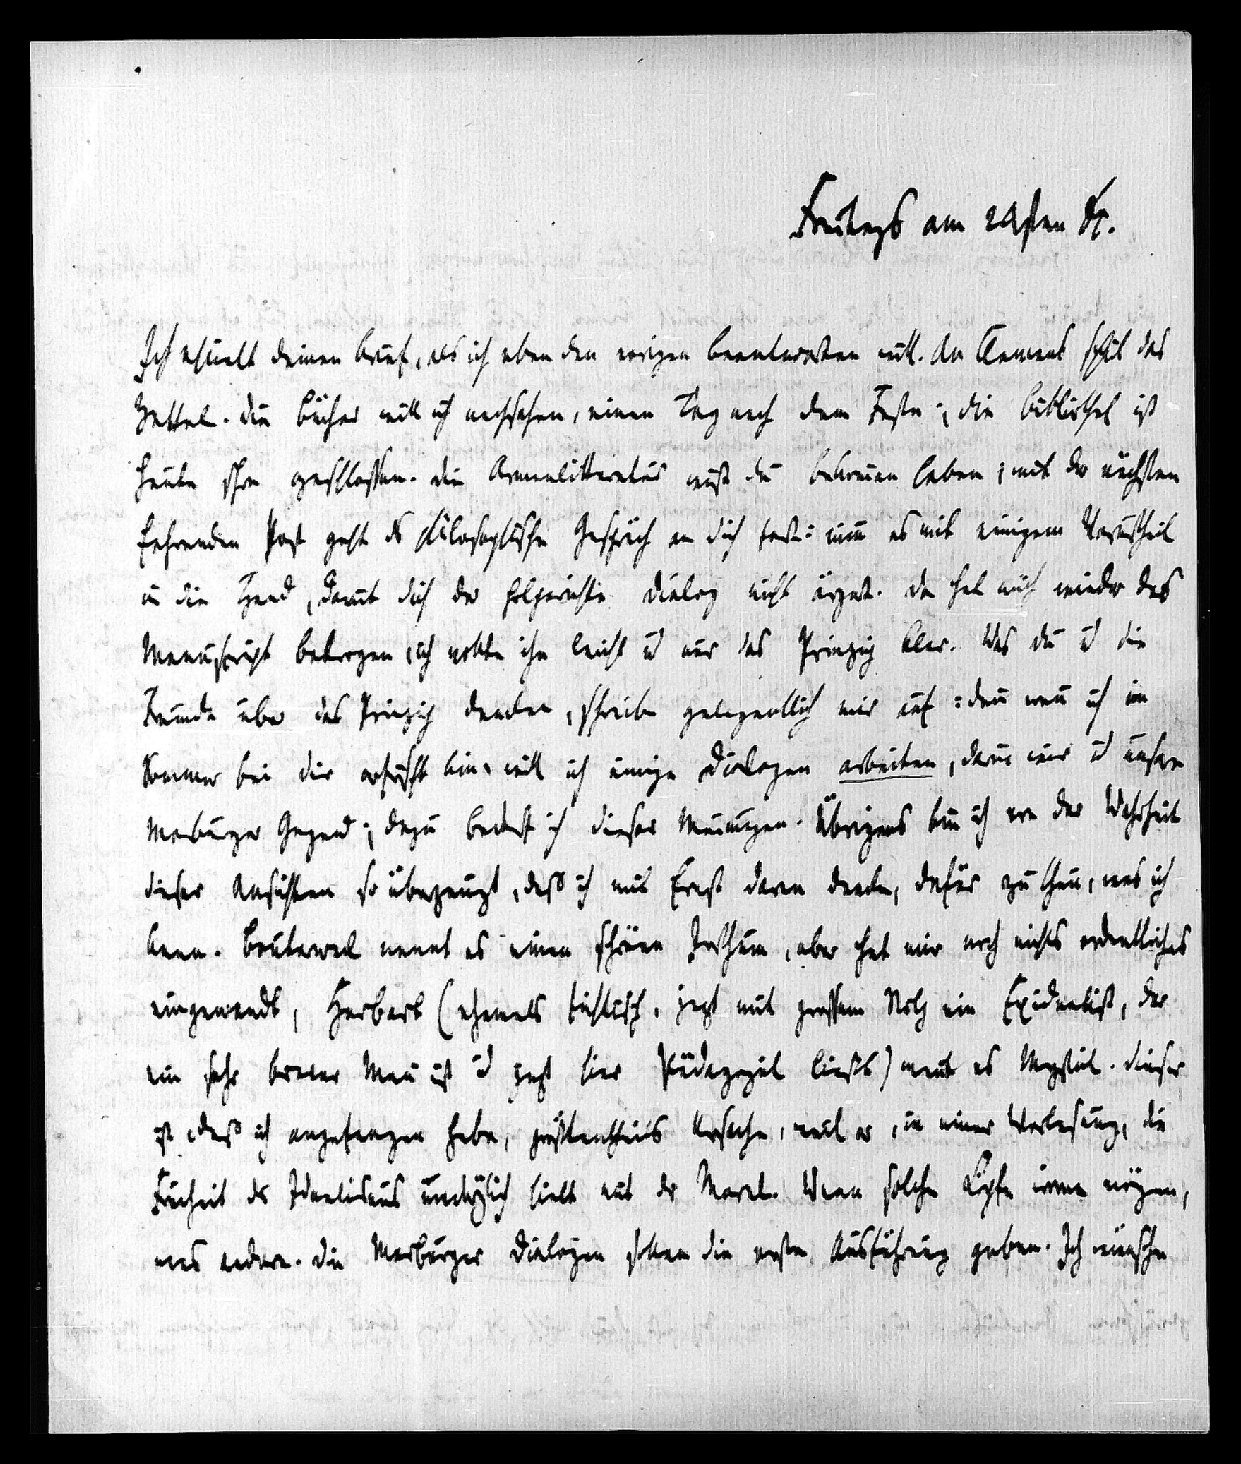 Freitags am 24sten Dc.
Ich erhielt deinen Brief, als ich eben den vorigen beantworten will. An Clemens schik das
Zettel. Die Bücher will ich nachsehen, einen Tag nach dem Feste; die Bibliothek ist
heute schon geschlossen. die Armenlitteratur must du bekommen haben; mit der nächsten
fahrenden Post geht das philosophische Gespräch an dich fort: nim es mit einigem Vorurtheil
in die Hand, damit dich der Dialog nicht ärgert. da hat mich wieder das
Manuscript betrogen, ich wollte ihn leicht u nur das Prinzip klar. Was du u die
Freunde über das Prinzip denken, schreibe gelegentlich mir auf: denn wenn ich im
Sommer bei dir bin, will ich einige Dialogen arbeiten, darin wir u unsere
Marburger Gegend; dazu bedarf ich dieser Meinungen. Übrigens bin ich von der Wahrheit
dieser Ansichten so überzeugt, daß ich mit Ernst daran denke, dafür zu thun, was ich
kann. Bouterwek nennt es einen schönen Irrthum, aber hat mir noch nichts ordentliches
eingewandt, Herbart (ehemals Fichtisch, jezt mit grossem Stolz ein, der
ein sehr braver Man ist u jezt hier Pädagogik liesst) nent es Mystik. dieser
ist, daß ich angefangen habe, größtentheils Ursache, weil er, in einer Vorlesung, die
Freiheit des Idealismus unverträglich hielt mit der Moral. Wenn solche Köpfe irren mögen,
was andere. die Marburger Dialogen sollen die erste Ausführung geben. Ich wünsche